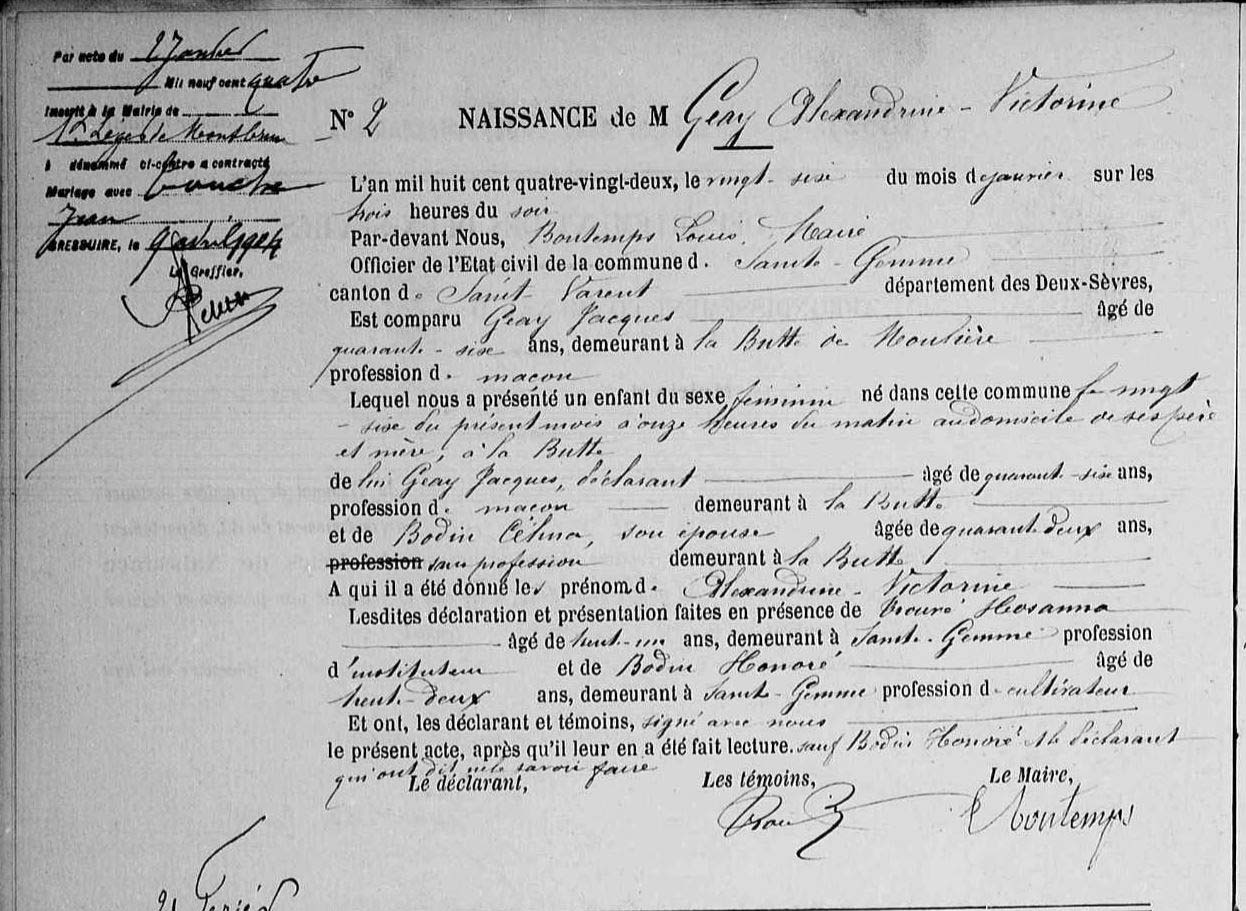 Par acte du 2 Janvier
Mil neuf cent quatre
Inscrit à la Mairie de
St Léger de Montbrun
l dénommé ci-contre a contracté
Mariage avec
Jean
BRESSUIRE, le 9 avril 1904
Le Greffier,
N° 2 NAISSANCE de M Geay Alexandrine-Victorine
L'an mil huit cent quatre-vingt-deux, le vingt-six du mois de janvier sur les
trois heures du soir
Par-devant Nous, Bontemps Louis, Maire
Officier de l'Etat civil de la commune d. Sainte-Gemme
canton de Saint-Varent département des Deux-Sèvres,
Est comparu Geay Jacques âgé de
quarante-six ans, demeurant à la Butte de
profession d. maçon
Lequel nous a présenté un enfant du sexe féminin né dans cette commune le vingt
-six du présent mois à onze heures du matin au domicile de ses père
et mère, à la Butte
de lui Geay Jacques, déclarant âgé de quarante-six ans,
profession d. maçon demeurant à la Butte
et de Bodin Célina, son épouse âgée de quarante-deux ans,
profession sans profession demeurant à la Butte
A qui il a été donné les prénom d. Alexandrine-Victorine
Lesdites déclaration et présentation faites en présence de Hosanna
âgé de trente-un ans, demeurant à Sainte-Gemme profession
d'instituteur et de Bodin Honoré âgé de
trente-deux ans, demeurant à Sainte-Gemme profession de cultivateur
Et ont, les déclarant et témoins, signé avec nous
le présent acte, après qu'il leur en a été fait lecture. sauf Bodin Honoré et le déclarant
qui ont dit ne le savoir faire
Le déclarant, Les témoins, Le Maire,
Bontemps